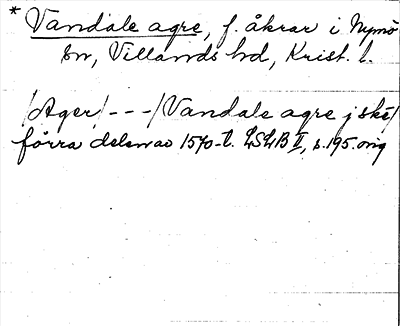 * Vandale agre, f. åkrar i Nymö
sn, Villands hd, Krist. l.
/Ager/ - - - /Vandale agre j ske/
förra delen av 1570-t. LSLB II, s. 195. orig